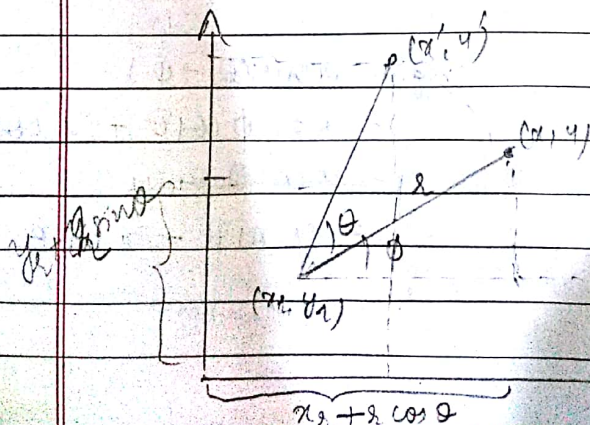 (x', y')
(x, y)
r
θ
ϕ
(xr, yr)
yr + r sinθ
xr + r cos θ